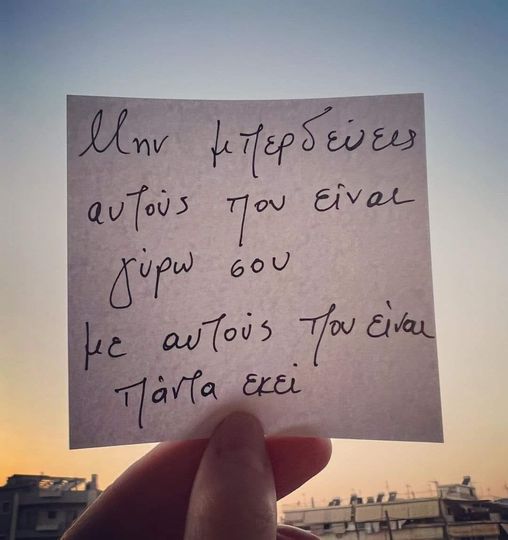 Μην μπερδεύεις
αυτούς που είναι
γύρω σου
με αυτούς που είναι
πάντα εκεί